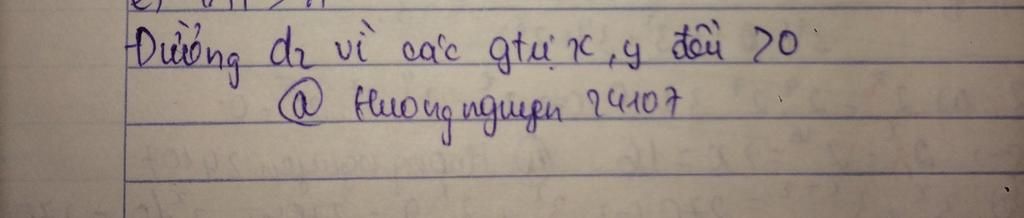 Đường d2 vì các gtrị x, y đều >0
@ Huongnguyen 24107